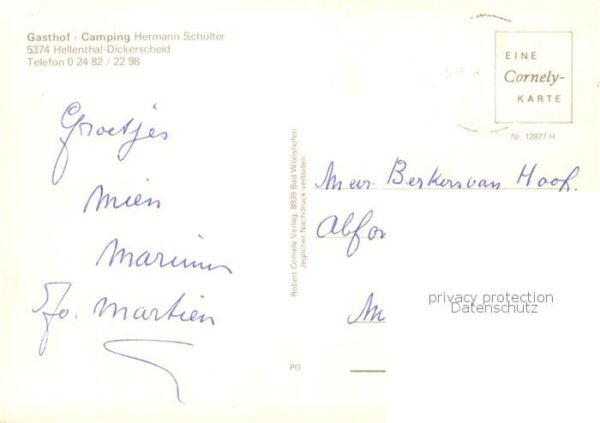 Gasthof - Camping Hermann Schülter
5374 Hellenthal-Dickerscheid
Telefon 0 24 82 / 22 98
EINE
Cornely-
KARTE
Nr. 12877 H
Groetjes
Mien
Marinus
Jo. Martien
Robert Cornely Verlag, 8939 Bad Wörishofen
Jeglicher Nachdruck verboten
Mevr. Berkers van Hoof.
PO
privacy protection
Datenschutz